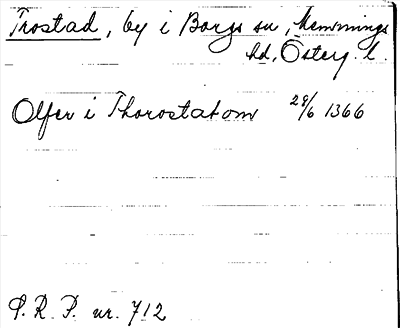 Trostad, by i Borgs sn, Memmings
hd, Österg. l.
Olfer i Thorostatom 28/6 1366
P. R. P. nr. 712